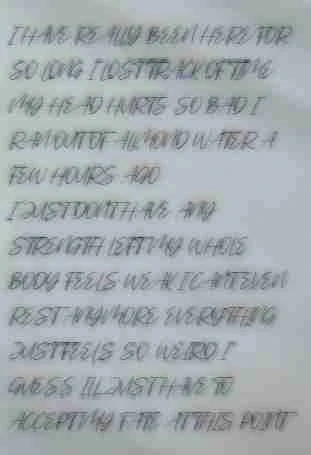 I HAVE REALLY BEEN HERE FOR
SO LONG I LOST TRACK OF TIME
MY HEAD HURTS SO BAD I
RAN OUT OF ALMOND WATER A
FEW HOURS AGO
I JUST DONT HAVE ANY
STRENGTH LEFT MY WHOLE
BODY FEELS WEAK I CANT EVEN
REST ANYMORE EVERYTHING
JUST FEELS SO WEIRD I
GUESS ILL JUST HAVE TO
ACCEPT MY FATE AT THIS POINT